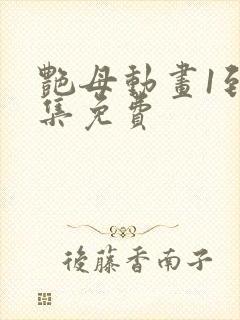 艷母動畫1到
集免費
後藤香南子